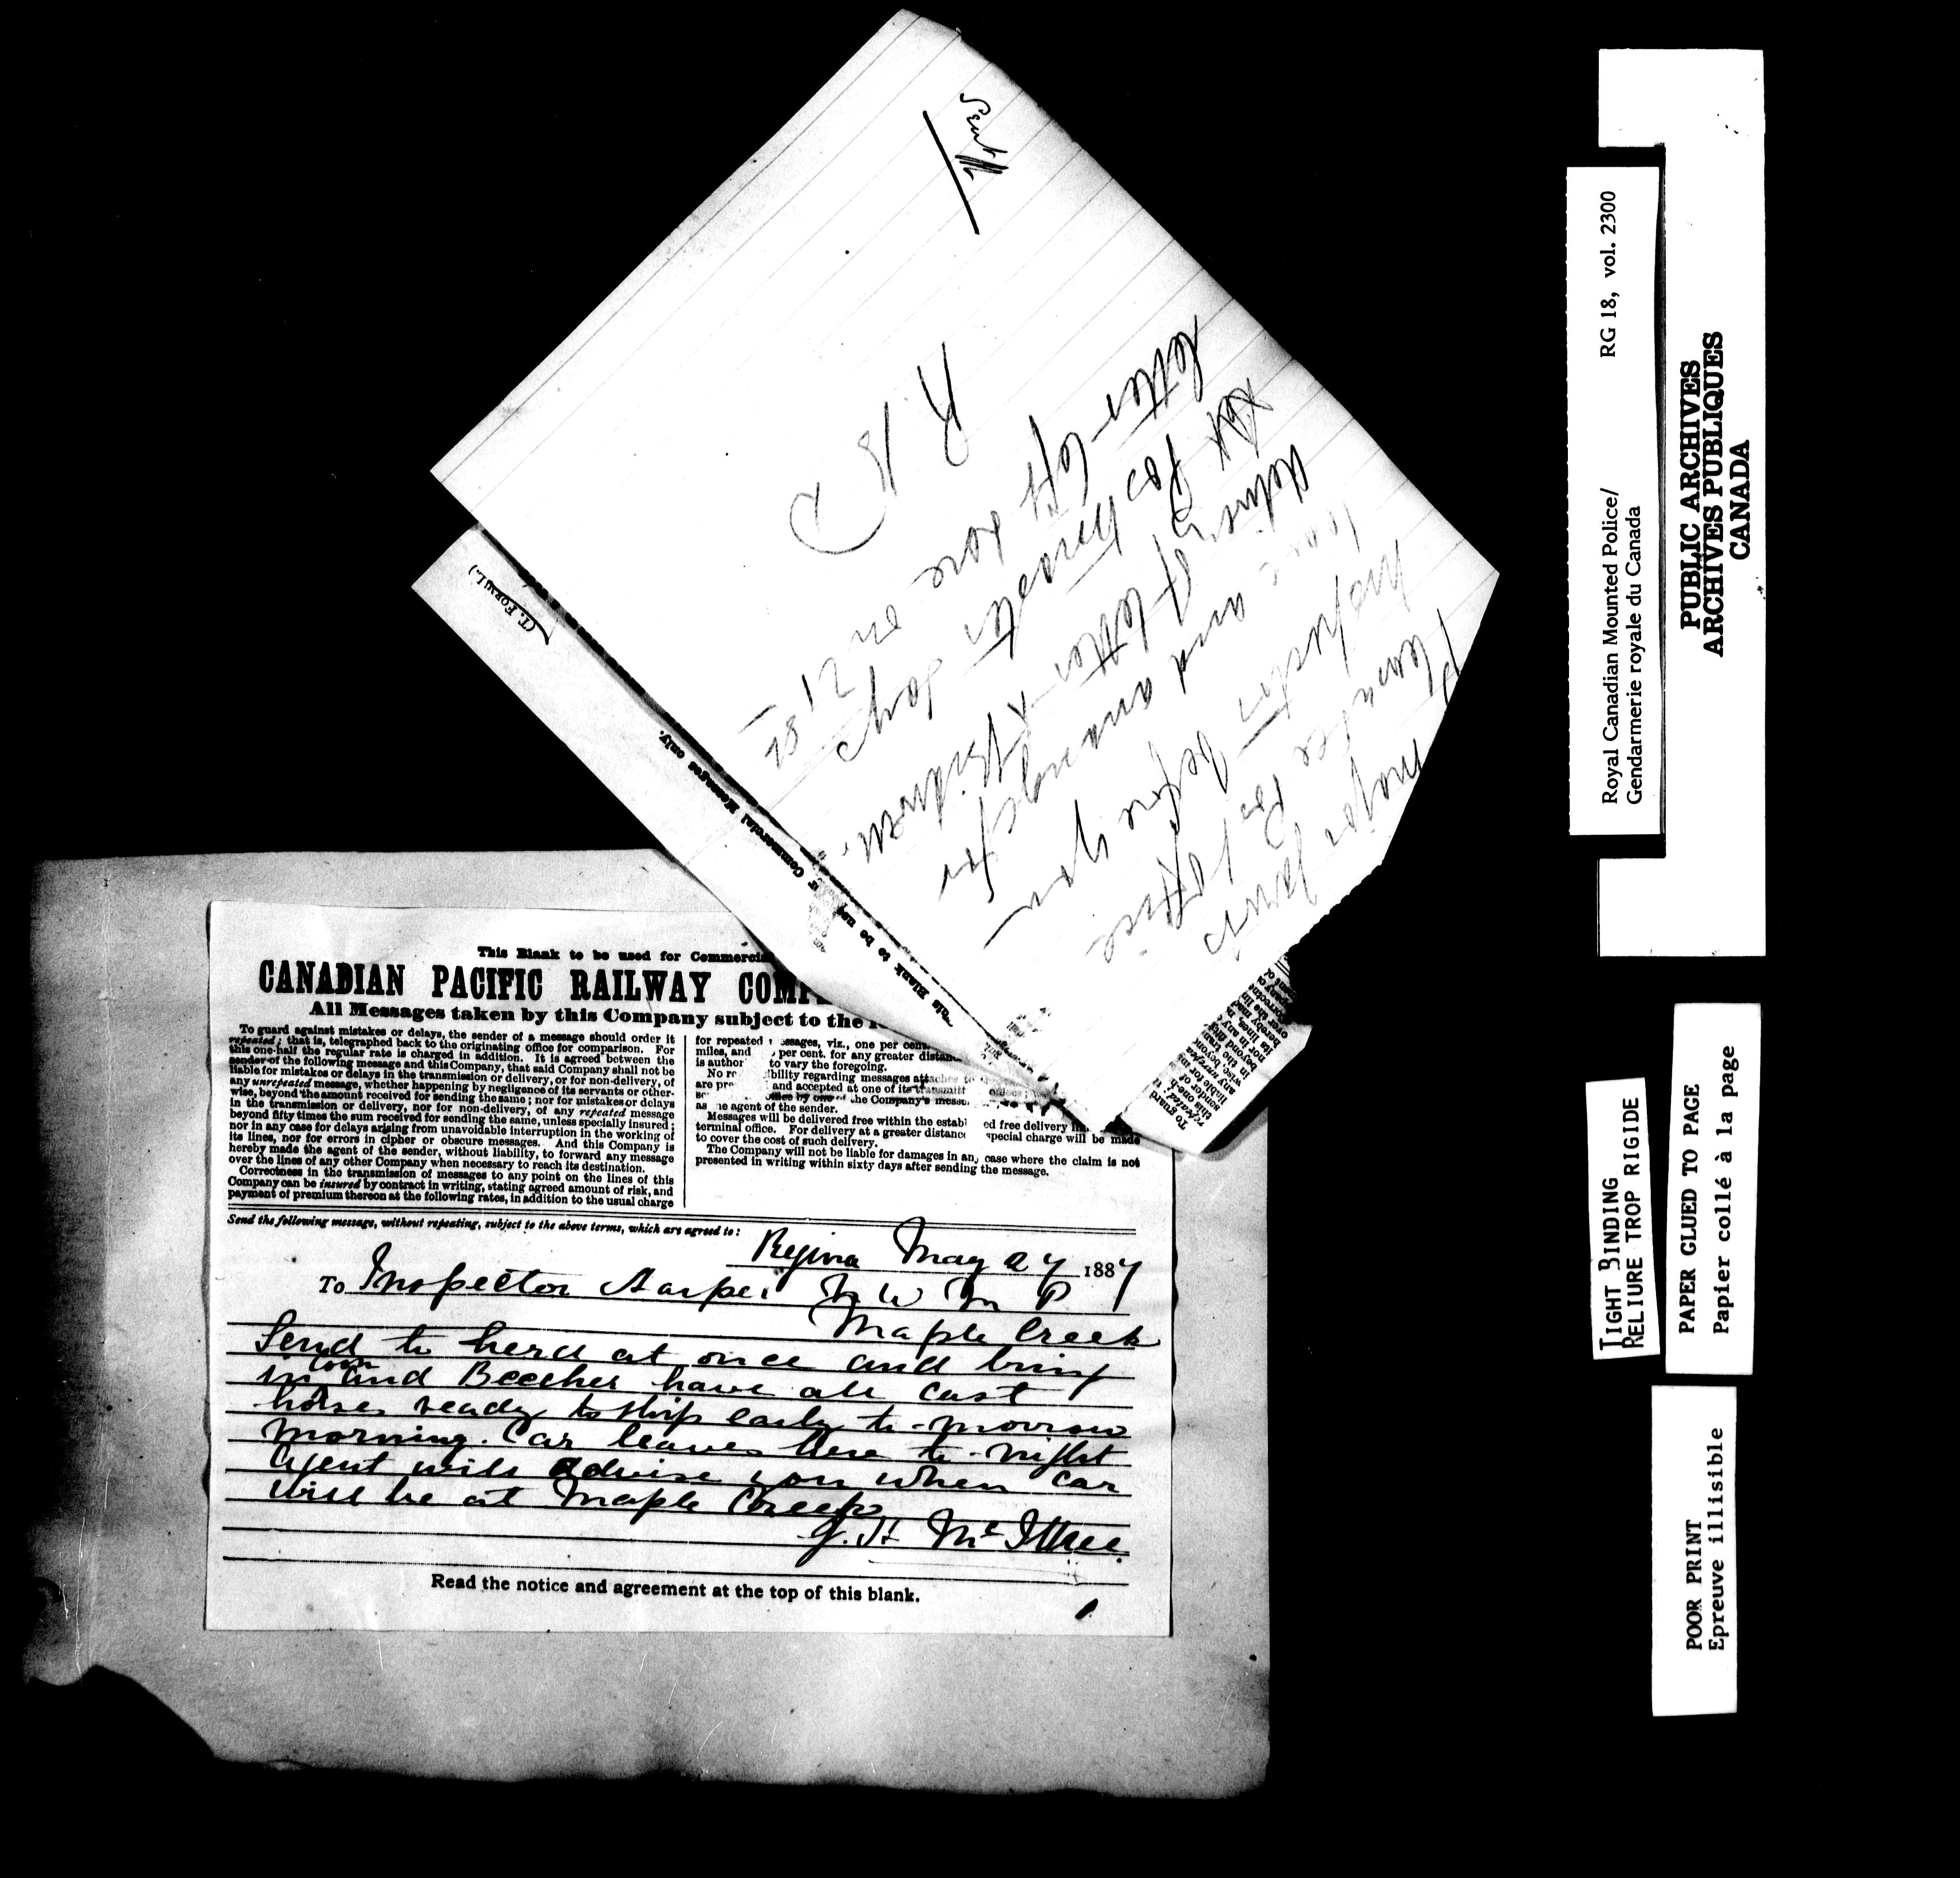 Sent
Major Jarvis
Plenabee Pos Office
Inspection before you
loose and arrange for
of letter
Pos
letter left here on 21st
R B D
(T. FORM 1.)
This Blank to be used for Commercial Messages only.
This Blank to be used for Commercial
CANADIAN PACIFIC RAILWAY COMP
All Messages taken by this Company subject to the
To guard against mistakes or delays, the sender of a message should order it
repeated; that is, telegraphed back to the originating office for comparison. For
this one-half the regular rate is charged in addition. It is agreed between the
sender of the following message and this Company, that said Company shall not be
liable for mistakes or delays in the transmission or delivery, or for non-delivery, of
any unrepeated message, whether happening by negligence of its servants or other-
wise, beyond the amount received for sending the same; nor for mistakes or delays
in the transmission or delivery, nor for non-delivery, of any repeated message
beyond fifty times the sum received for sending the same, unless specially insured;
nor in any case for delays arising from unavoidable interruption in the working of
its lines, nor for errors in cipher or obscure messages. And this Company is
hereby made the agent of the sender, without liability, to forward any message
over the lines of any other Company when necessary to reach its destination.
Correctness in the transmission of messages to any point on the lines of this
Company can be insured by contract in writing, stating agreed amount of risk, and
payment of premium thereon at the following rates, in addition to the usual charge
for repeated messages, viz., one per cent
miles, and per cent. for any greater distan
is author to vary the foregoing.
No re ibility regarding messages attaches to
are pre and accepted at one of its transmit offices;
office by one of the Company's messe
as he agent of the sender.
Messages will be delivered free within the establ ed free delivery
terminal office. For delivery at a greater distanc special charge will be made
to cover the cost of such delivery.
The Company will not be liable for damages in any case where the claim is not
presented in writing within sixty days after sending the message.
Send the following message, without repeating, subject to the above terms, which are agreed to:
Regina May 27 1887
To Inspector Harper N W M P
Maple Creek
Send to herd at once and bring
in Coon and Beecher have all cast
horses ready to ship early to-morrow
morning. Car leaves here to-night
Agent will advise you when car
will be at Maple Creek
J. H McIllree
Read the notice and agreement at the top of this blank.
Royal Canadian Mounted Police/ RG 18, vol. 2300
Gendarmerie royale du Canada
PUBLIC ARCHIVES
ARCHIVES PUBLIQUES
CANADA
TIGHT BINDING
RELIURE TROP RIGIDE
PAPER GLUED TO PAGE
Papier collé à la page
POOR PRINT
Epreuve illisible